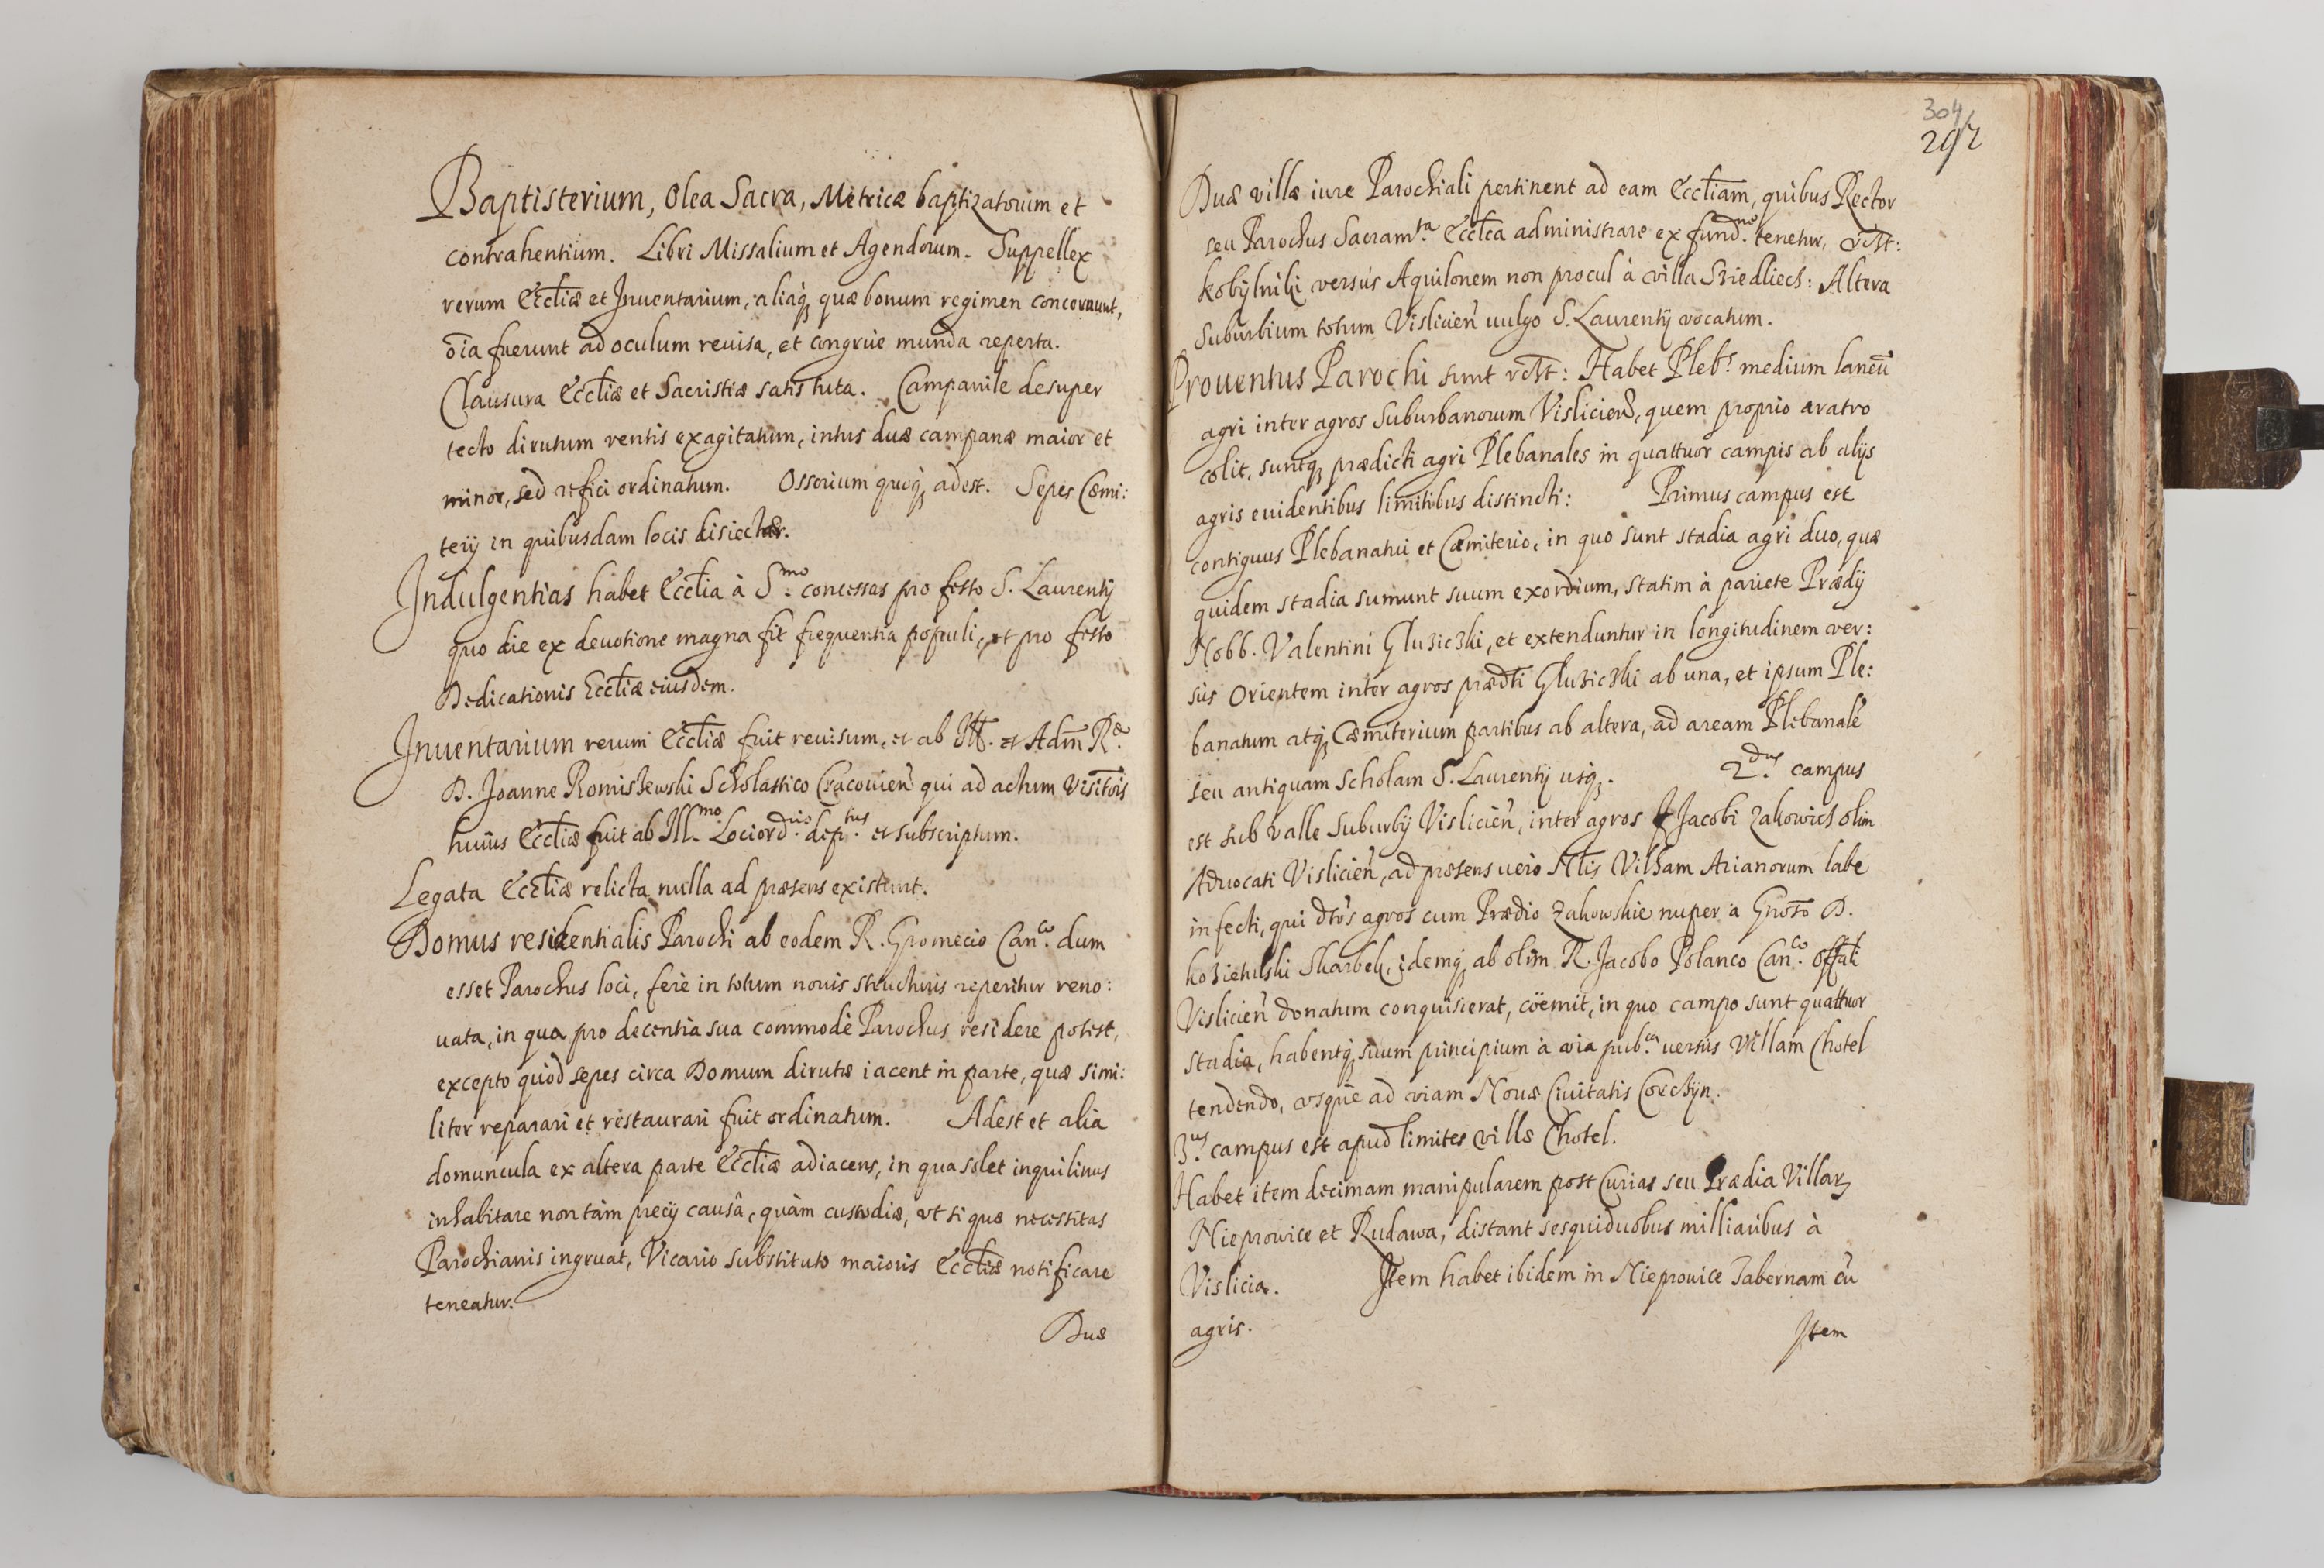 Baptisterium, Olea Sacra, Metricæ baptizatorum et
contrahentium. Libri Missalium et Agendorum. Suppellex
rerum Eccliæ et Inuentarium, aliaq; quæ bonum regimen concernunt,
oĩa fuerunt ad oculum reuisa, et congrue munda reperta.
Clausura Eccliæ et Sacristiæ satis tuta. Campanile desuper
tecto dirutum ventis exagitatum, intus duæ campanæ maior et
minor, sed refici ordinatum. Ossorium quoq; adest. Sepes Cæmi:
terij in quibusdam locis disiectæ.
Indulgentias habet Ecclia à S.mo concessas pro festo S. Laurentij
quo die ex deuotione magna fit frequentia populi, et pro festo
Dedicationis Eccliæ eiusdem.
Inuentarium rerum Eccliæ fuit reuisum, et ab Ill. et Adm̃ R.do
D. Joanne Romiszewski Scholastico Cracouień qui ad actum Visitõis
huius Eccliæ fuit ab Ill.mo Lociord.rio dep.tus et subscriptum.
Legata Eccliæ relicta nulla ad præsens existunt.
Domus residentialis Parochi ab eodem R. Gnomecio Can.co dum
esset Parochus loci, fere in totum nouis structuris reperitur reno:
uata, in qua pro decentia sua commodè Parochus residere potest,
excepto quòd sepes circa Domum dirutæ iacent in parte, quæ simi:
liter reparari et restaurari fuit ordinatum. Adest et alia
domuncula ex altera parte Eccliæ adiacens, in qua solet inquilinus
inhabitare non tàm precij causâ, quàm custodiæ, vt si quæ necessitas
Parochianis ingruat, Vicario substituto maioris Eccliæ notificare
teneatur.
Duæ
304
292
Duæ villæ iure Parochiali pertinent ad eam Eccliam, quibus Rector
seu Parochus Sacram.ta Ecclca administrare ex fund.ne tenetur, vclt:
Kobylniki versùs Aquilonem non procul à villa Sziedliecz: Altera
Suburbium totum Vislicień uulgo S. Laurentij vocatum.
Prouentus Parochi sunt vclt: Habet Pleb.s medium laneũ
agri inter agros Suburbanorum Vislicień, quem proprio aratro
colit, suntq; prædicti agri Plebanales in quattuor campis ab alijs
agris euidentibus limitibus distincti: Primus campus est
contiguus Plebanatui et Cæmiterio, in quo sunt stadia agri duo, quæ
quidem stadia sumunt suum exordium, statim à pariete Prædij
Nobb. Valentini Gluzicki, et extenduntur in longitudinem ver:
sùs Orientem inter agros præd̃ti Gluzicki ab una, et ipsum Ple:
banatum atq; Cæmiterium partibus ab altera, ad aream Plebanalẽ
seu antiquam Scholam S. Laurentij usq;. 2.dus campus
est sub valle Suburbij Vislicień, inter agros Jacobi Zakowicz olim
Aduocati Vislicień, ad præsens uero Nlis Vilham Arianorum labe
infecti, qui dtõs agros cum Prædio Zakowskie nuper a Gnoso D.
Kozietulski Skarbek, idemq; ab olim R. Jacobo Polanco Can.co Offali
Vislicień donatum conquisierat, coëmit, in quo campo sunt quattuor
stadia, habentq; suum principium à via pub.ca uersùs Villam Chotel
tendendo, vsque ad viam Nouæ Ciuitatis Corczyn.
3.us campus est apud limites villæ Chotel.
Habet item decimam manipularem post Curias seu Prædia Villarz
Nieprowice et Rudawa, distant sesquiduobus milliaribus à
Vislicia. Item habet ibidem in Nieprowice Tabernam cũ
agris.
Item